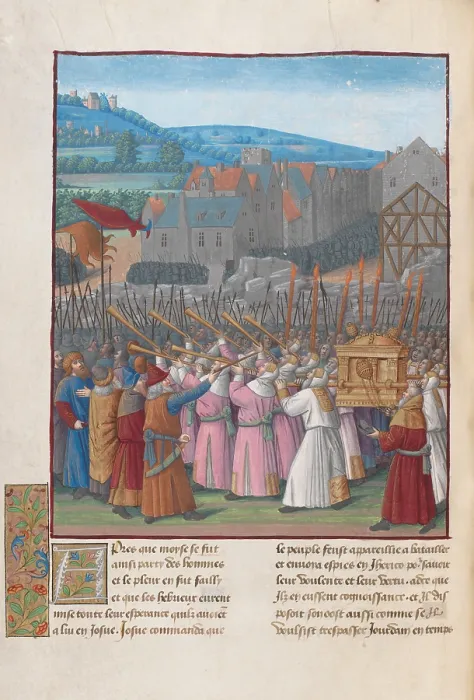 Apres que moyse se fut
ainsi party des hommes
et le pleur en fut failly
et que les hebrieux eurent
mise toute leur esperance quilz auoiēt
a liu en Josue. Josue commanda que
le peuple feust appareillie a batailler
et enuoya espies en Jherico poʳ sauoir
leur voulente et leur vertu. adce que
Ilz en eussent cognoissance. et Il dis
posoit son ost aussi comme se Il
voulsist trespasser Jourdain en temps